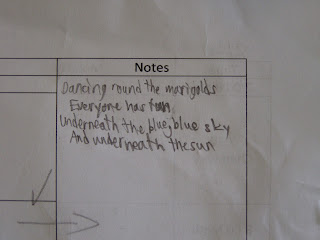 Notes
Dancing round the marigolds
Everyone has fun
Underneath the blue, blue sky
And underneath the sun